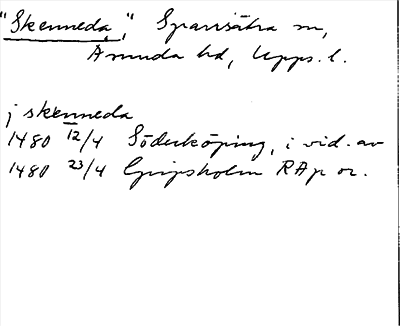 "Skenneda," Sparrsätra sn,
Åsunda hd, Upps. l.
j skenneda
1480 12/4 Söderköping, i vid. av
1480 23/4 Gripsholm RAp or.